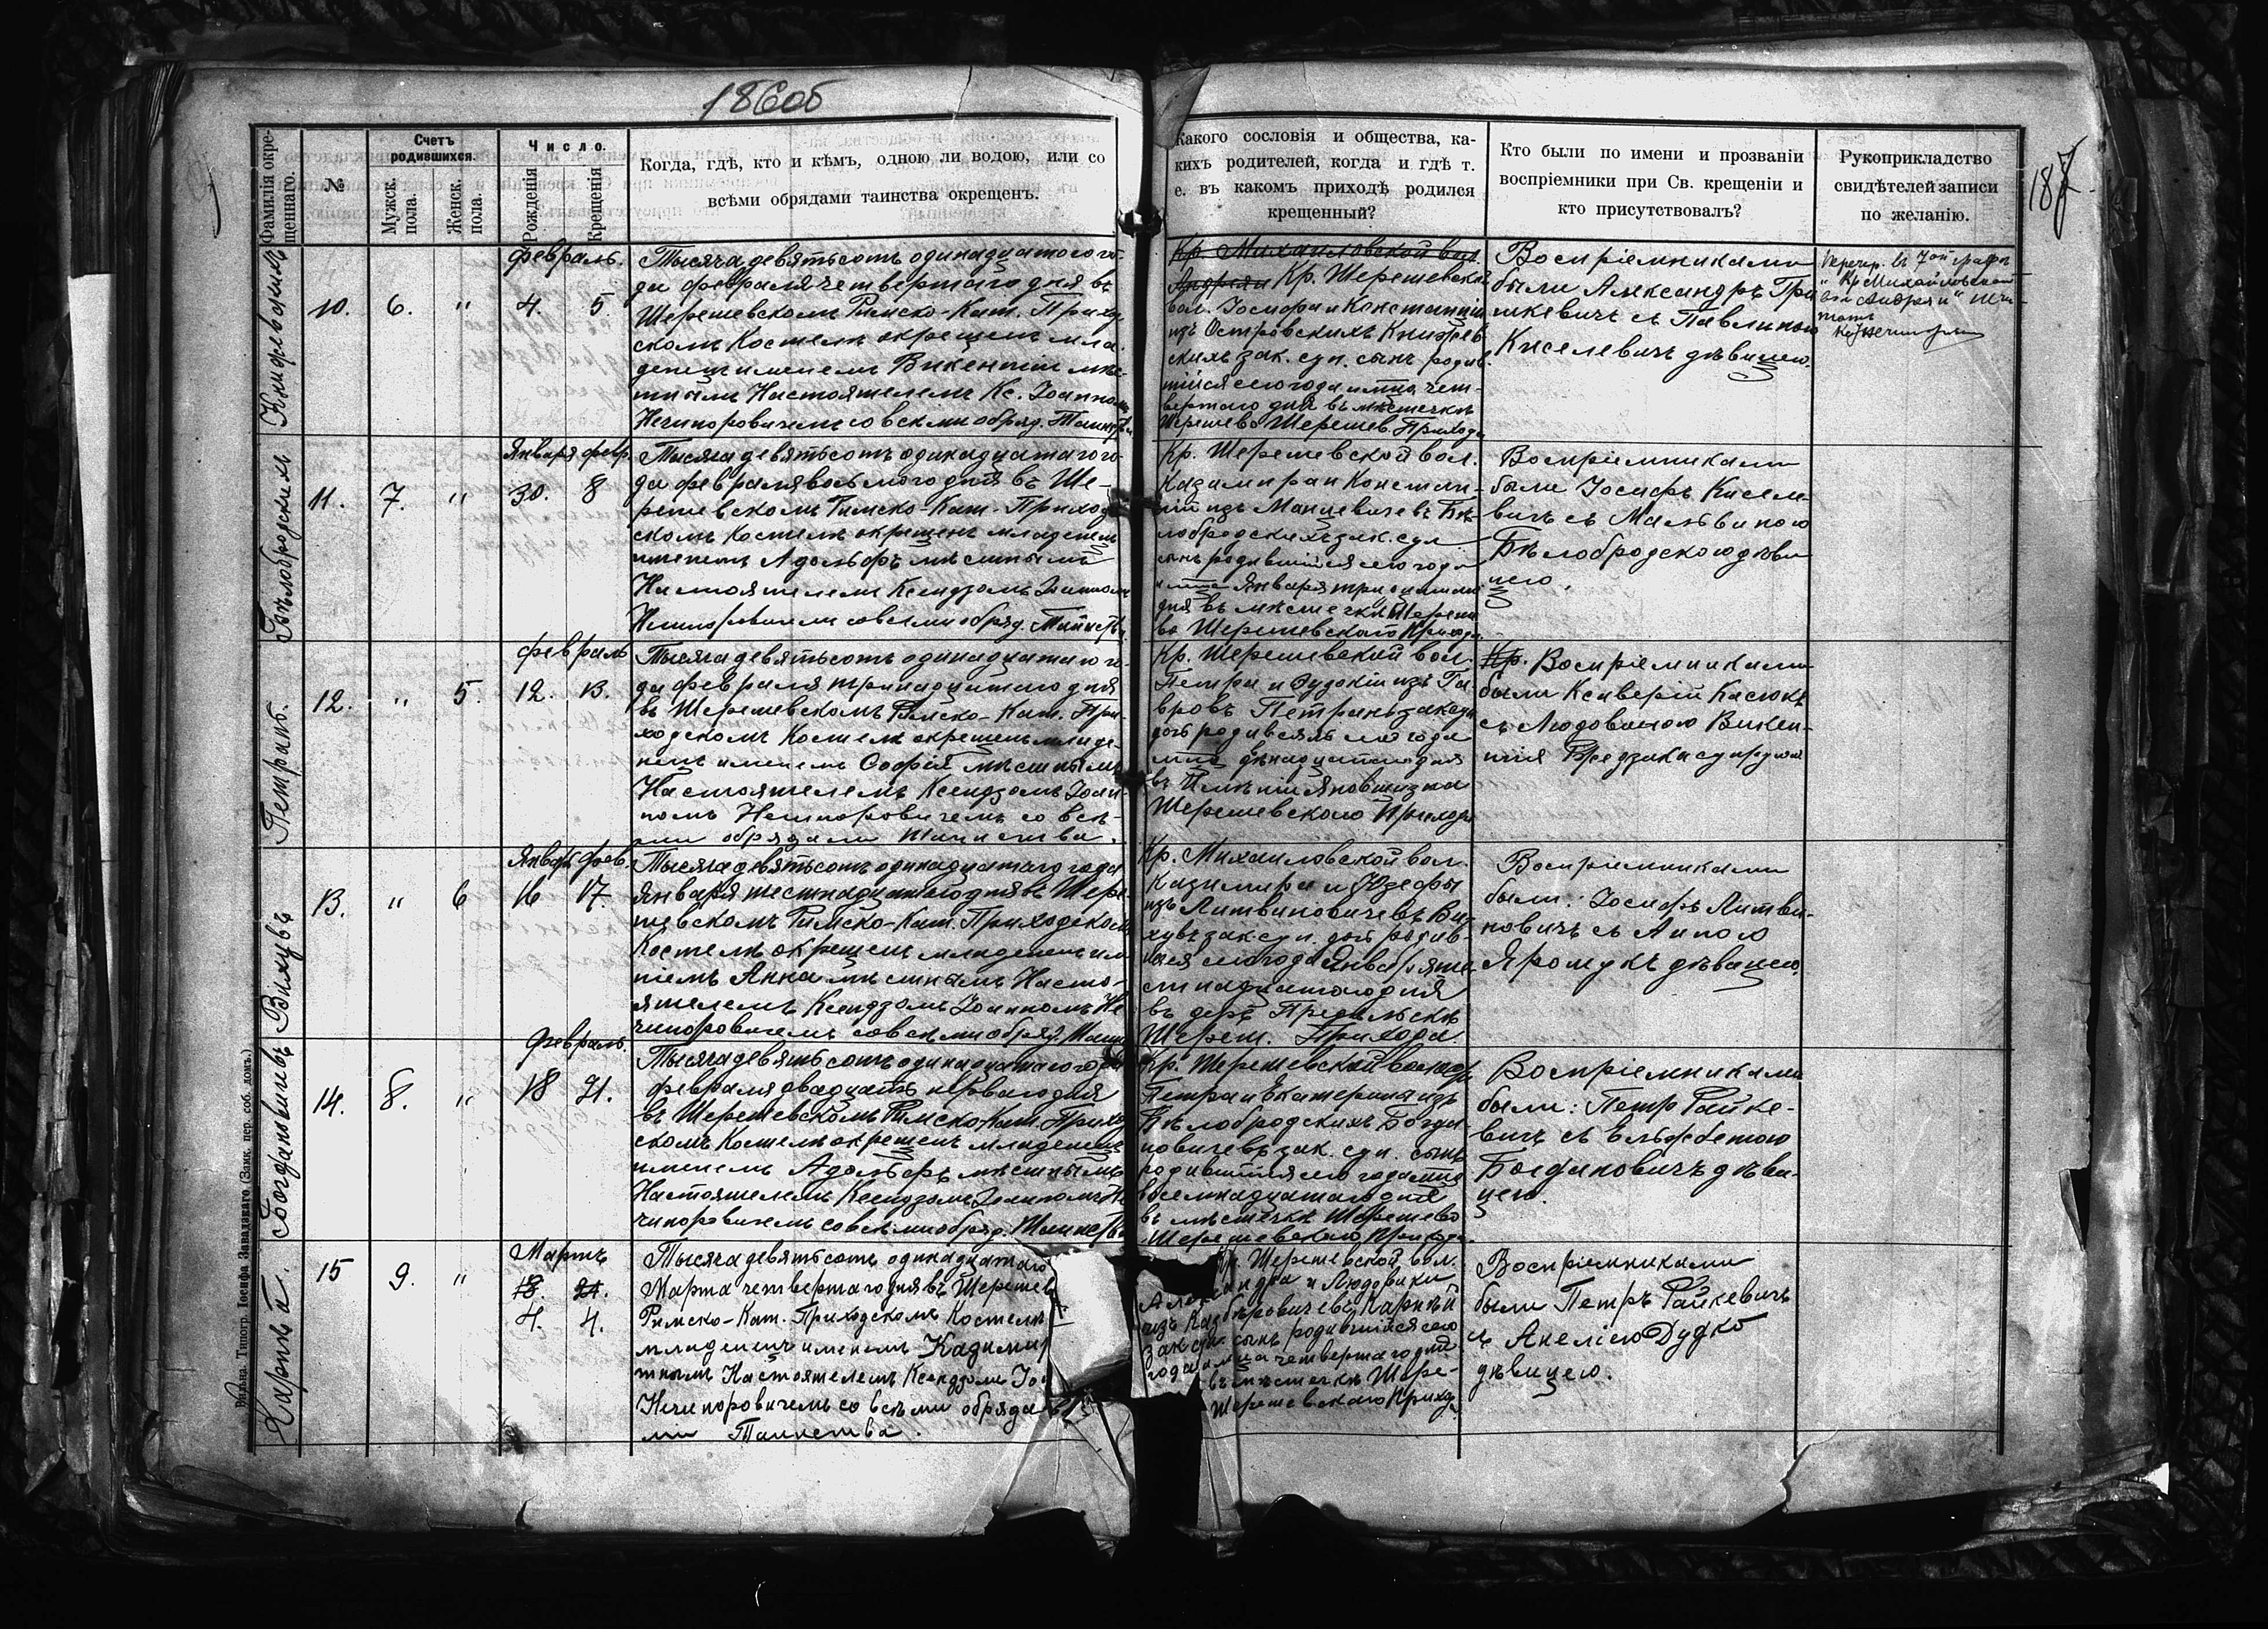 186об
187
Фамилія окре-
щеннаго.
№
Счетъ
родившихся.
Мужск.
пола.
Женск.
пола.
Число.
Рожденія
Крещенія
Когда, гдѣ, кто и кѣмъ, одною ли водою, или со
всѣми обрядами таинства окрещенъ.
Какого сословія и общества, ка-
кихъ родителей, когда и гдѣ т.
е. въ какомъ приходѣ родился
крещенный?
Кто были по имени и прозваніи
воспріемники при Св. крещеніи и
кто присутствовалъ?
Рукоприкладство
свидѣтелей записи
по желанію.
10. 6. " 4. 5.
Февраль.
Тысяча девятьсотъ одинадцатого го-
да февраля четвертаго дня въ
Шерешевскомъ Римско-Кат. Приход
скомъ Костелѣ окрещенъ мла-
денецъ именемъ Викентій мѣс-
тнымъ Настоятелемъ Кс. Іоанномъ
Нечипоровичемъ со всѣми обряд. Таинства
Кр. Михаиловской вол.
Андрея Кр. Шерешевской
вол. Іосифа и Константіи
изъ Островскихъ
скихъ зак. суп. сынъ родив
шійся сего года и мца чет-
вертаго дня въ мѣстечкѣ
Шерешево Шерешев. Прихода
Воспріемниками
были Александръ Гри
шкевичъ съ Павлиною
Киселевичъ дѣвицею.
Бѣлобродскій
11. 7. " 30. 8
Января Февр.
Тысяча девятьсотъ одинадцатаго го-
да февраля восьмого дня въ Ше-
решевскомъ Римско-Кат. Приход
скомъ Костелѣ окрещенъ младенецъ
именемъ Адольфъ мѣстнымъ
Настоятелемъ Ксендзомъ Іоанномъ
Нечипоровичемъ со всѣми обряд. Таинства
Кр. Шерешевской вол.
Казимира и Констан-
ціи изъ Мацкевичевъ Бѣ-
лобродскихъ зак. суп
сынъ родившійся сего года
и мца Января тридцатаго
дня въ мѣстечкѣ Шереше
во Шерешевского Прихода.
Воспріемниками
были Іосифъ Кисиле-
вичъ съ Мальвиною
Бѣлобродскою дѣви
цею.
Петранъ.
12. " 5. 12. 13.
Февраль
Тысяча девятьсотъ одинадцатаго го-
да февраля тринадцатаго дня
въ Шерешевскомъ Римско-Кат. При-
ходскомъ Костелѣ окрещенъ младе-
нецъ именемъ Софія мѣстнымъ
Настоятелемъ Ксендзомъ Іоан-
номъ Нечипоровичемъ со всѣ-
ми обрядами таинства.
Кр. Шерешевской вол.
Петра и Эудокіи изъ Га-
вровъ Петрань
дочь родившаяся сего года
мца двѣнадцатаго дня
въ Имѣніи
Шерешевского Прихода
Кр. Воспріемниками
были Ксаверій Касюкъ
съ Людовикою Викен-
тія
Вихувъ
13. " 6 16 17.
Январь Фев.
Тысяча девятьсотъ одинадцатаго года
Января шестнадцатаго дня въ Шере-
шевскомъ Римско-Кат. Приходскомъ
Костелѣ окрещенъ младенецъ име
немъ Анна мѣстнымъ Насто-
ятелемъ Ксендзомъ Іоанномъ Не
чипоровичемъ со всѣми обряд. Таин
Кр. Михаиловской вол.
Казимира и Юзефы
изъ Литвиновичевъ Ви-
хувъ зак. суп. дочь родив-
шаяся сего года Января ше
стнадцатаго дня
въ дер.
Шереш. Прихода.
Воспріемниками
были: Іосифъ Литви-
новичъ съ Анною
Яромукъ дѣвицею.
Богдановичъ
14. 8. " 18 21.
Февраль.
Тысяча девятьсотъ одинадцатаго года
февраля двадцать перваго дня
въ Шерешевскомъ Римско Кат. Приход
скомъ Костелѣ окрещенъ младенецъ
именемъ Адольфъ мѣстнымъ
Настоятелемъ Ксендзомъ Іоанномъ Не
чипоровичемъ со всѣми обряд. Таинства
Кр. Шерешевской волости
Петра и Екатерины изъ
Бѣлобродскихъ Богда
новичевъ зак. суп. сынъ
родившійся сего года мца
восемнадцатаго дня
въ мѣстечкѣ Шерешево
Шерешевского Прихода.
Воспріемниками
были: Петр Райке-
вичъ съ Ельжбетою
Богдановичъ дѣви-
цею.
15 9. " 18. 21.
4. 4.
Мартъ
Тысяча девятьсотъ одинадцатаго
Марта четвертаго дня въ Шерешев
Римско-Кат. Приходскомъ Костелѣ
младенецъ именемъ Казимир
тнымъ Настоятелемъ Ксендзомъ Іо
Нечипоровичемъ со всѣми обряда
ми Таинства.
Кр. Шерешевской вол.
Александра и Людовики
зак. суп. сынъ родившійся сего
года и мца четвертаго дня
въ мѣстечкѣ Шере-
Шерешевскаго Прихода
Воспріемниками
были Петръ Райкевичъ
съ Анеліею Дудко
дѣвицею.
Вильна. Типогр. Іосифа Завадзкаго (Замк. пер. соб. домъ.)